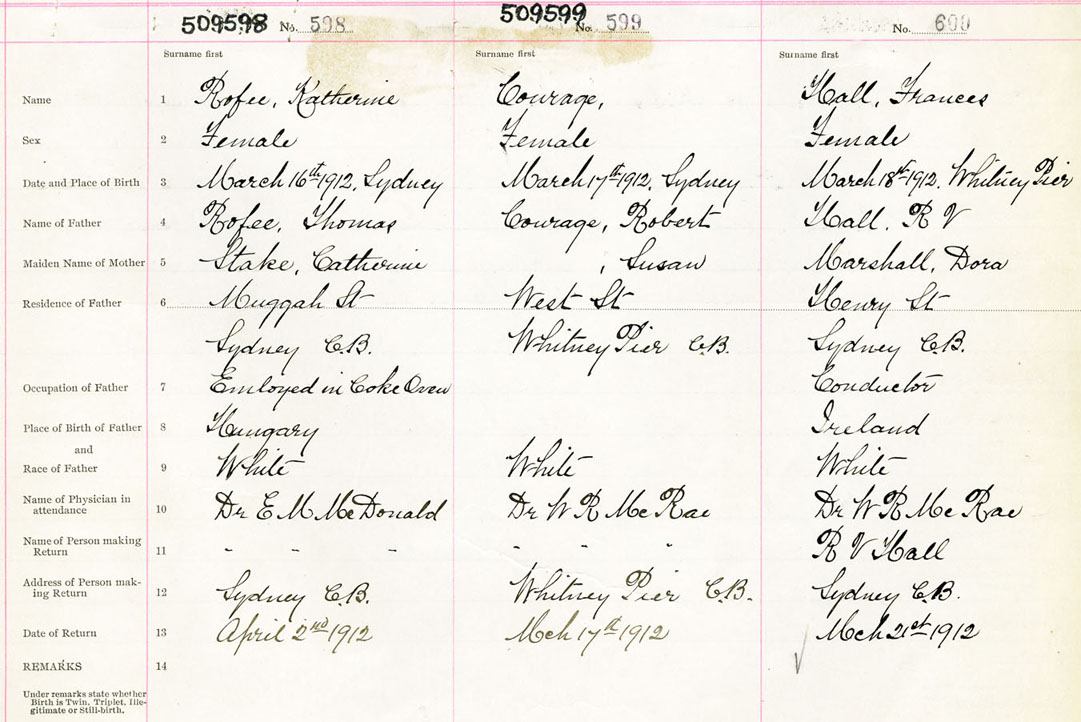 509598 No. 598 509599 No. 599 No. 600
Surname first Surname first Surname first
Name 1 Rofee, Katherine Courage, Hall, Frances
Sex 2 Female Female Female
Date and Place of Birth 3 March 16th 1912, Sydney March 17th 1912, Sydney March 18th 1912, Whitney Pier
Name of Father 4 Rofee, Thomas Courage, Robert Hall, R V
Maiden Name of Mother 5 Stake, Catherine , Susan Marshall, Dora
Residence of Father 6 Muggah St West St Henry St
Sydney C.B. Whitney Pier C.B. Sydney C.B.
Occupation of Father 7 Employed in Coke Oven Conductor
Place of Birth of Father 8 Hungary Ireland
and
Race of Father 9 White White White
Name of Physician in
attendance 10 Dr E M McDonald Dr W R McRae Dr W R McRae
Name of Person making
Return 11 " " " " " " R V Hall
Address of Person mak-
ing Return 12 Sydney C.B. Whitney Pier C.B. Sydney C.B.
Date of Return 13 April 2nd 1912 Mch 17th 1912 Mch 21st 1912
REMARKS 14
Under remarks state whether
Birth is Twin, Triplet, Ille-
gitimate or Still-birth.